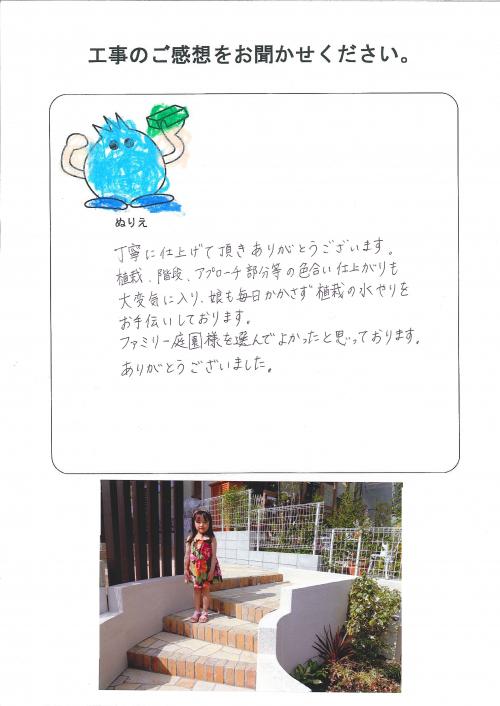 工事のご感想をお聞かせください。
ぬりえ
丁寧に仕上げて頂きありがとうございます。
植栽、階段、アプローチ部分等の色合い仕上がりも
大変気に入り、娘も毎日かかさず植栽の水やりを
お手伝いしております。
ファミリー庭園様を選んでよかったと思っております。
ありがとうございました。